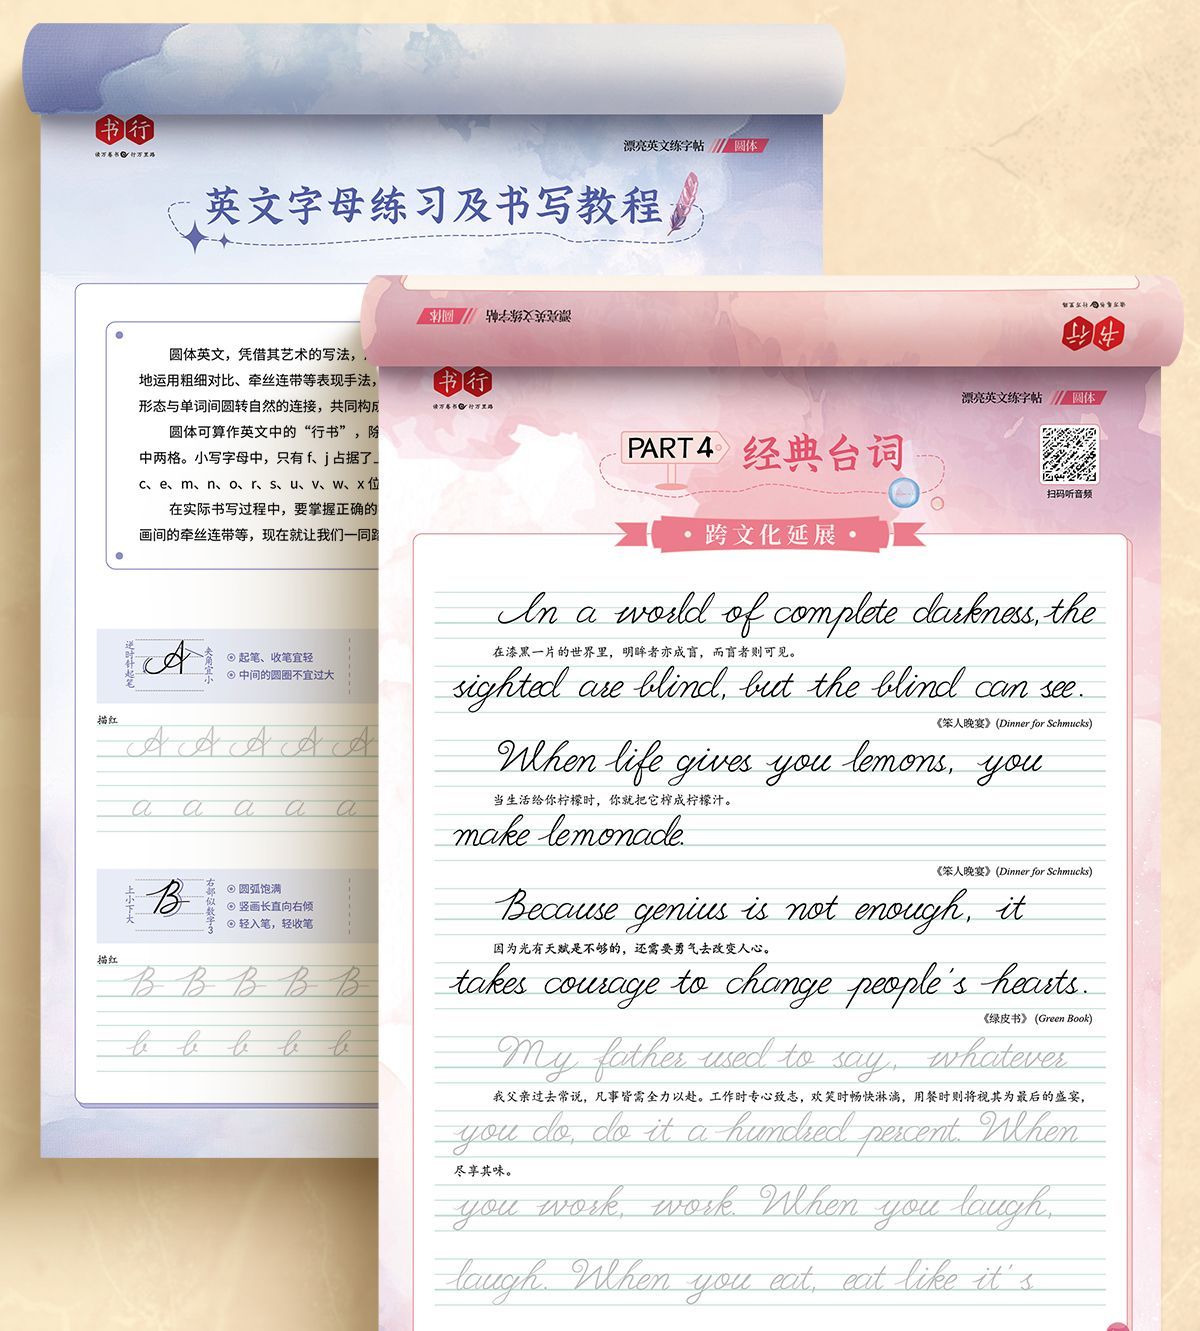 书行
读万卷书 行万里路
漂亮英文练字帖 圆体
英文字母练习及书写教程
圆体英文，凭借其艺术的写法，
地运用粗细对比、牵丝连带等表现手法，
形态与单词间圆转自然的连接，共同构成
圆体可算作英文中的“行书”，除
中两格。小写字母中，只有 f、j 占据了
c、e、m、n、o、r、s、u、v、w、x 位
在实际书写过程中，要掌握正确的
画间的牵丝连带等，现在就让我们一同踏
逆时针起笔
A
夹角宜小
起笔、收笔宜轻
中间的圆圈不宜过大
描红
A A A A A
a a a a a
上小下大
B
右部似数字3
圆弧饱满
竖画长直向右倾
轻入笔，轻收笔
描红
B B B B B
b b b b b
圆体 漂亮英文练字帖
读万卷书 行万里路
书行
书行
读万卷书 行万里路
漂亮英文练字帖 圆体
PART 4 经典台词
扫码听音频
跨文化延展
In a world of complete darkness, the
在漆黑一片的世界里，明眸者亦成盲，而盲者则可见。
sighted are blind, but the blind can see.
《笨人晚宴》(Dinner for Schmucks)
When life gives you lemons, you
当生活给你柠檬时，你就把它榨成柠檬汁。
make lemonade.
《笨人晚宴》(Dinner for Schmucks)
Because genius is not enough, it
因为光有天赋是不够的，还需要勇气去改变人心。
takes courage to change people's hearts.
《绿皮书》 (Green Book)
My father used to say, whatever
我父亲过去常说，凡事皆需全力以赴。工作时专心致志，欢笑时畅快淋漓，用餐时则将视其为最后的盛宴，
you do, do it a hundred percent. When
尽享其味。
you work, work. When you laugh,
laugh. When you eat, eat like it's